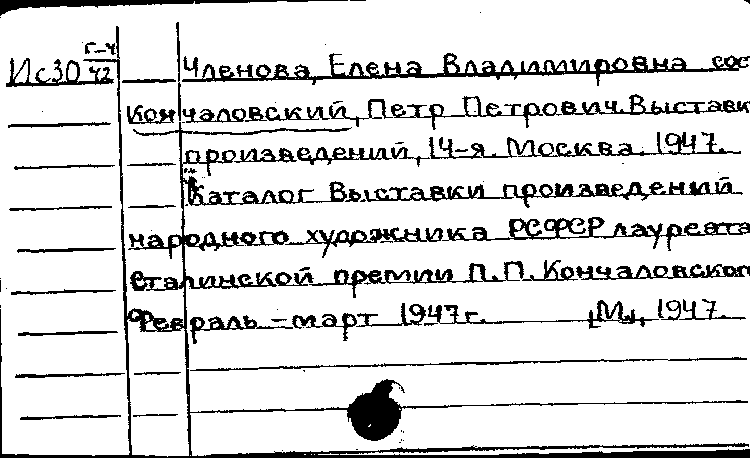 Ис30 Г-4/42 Членова, Елена Владимировна сос
Кончаловский, Петр Петрович. Выставк
произведений, 14-я. Москва. 1947.
Каталог Выставки произведений
народного художника РСФСР лауреата
Сталинской премии П.П. Кончаловског
Февраль - март 1947г. [М], 1947.